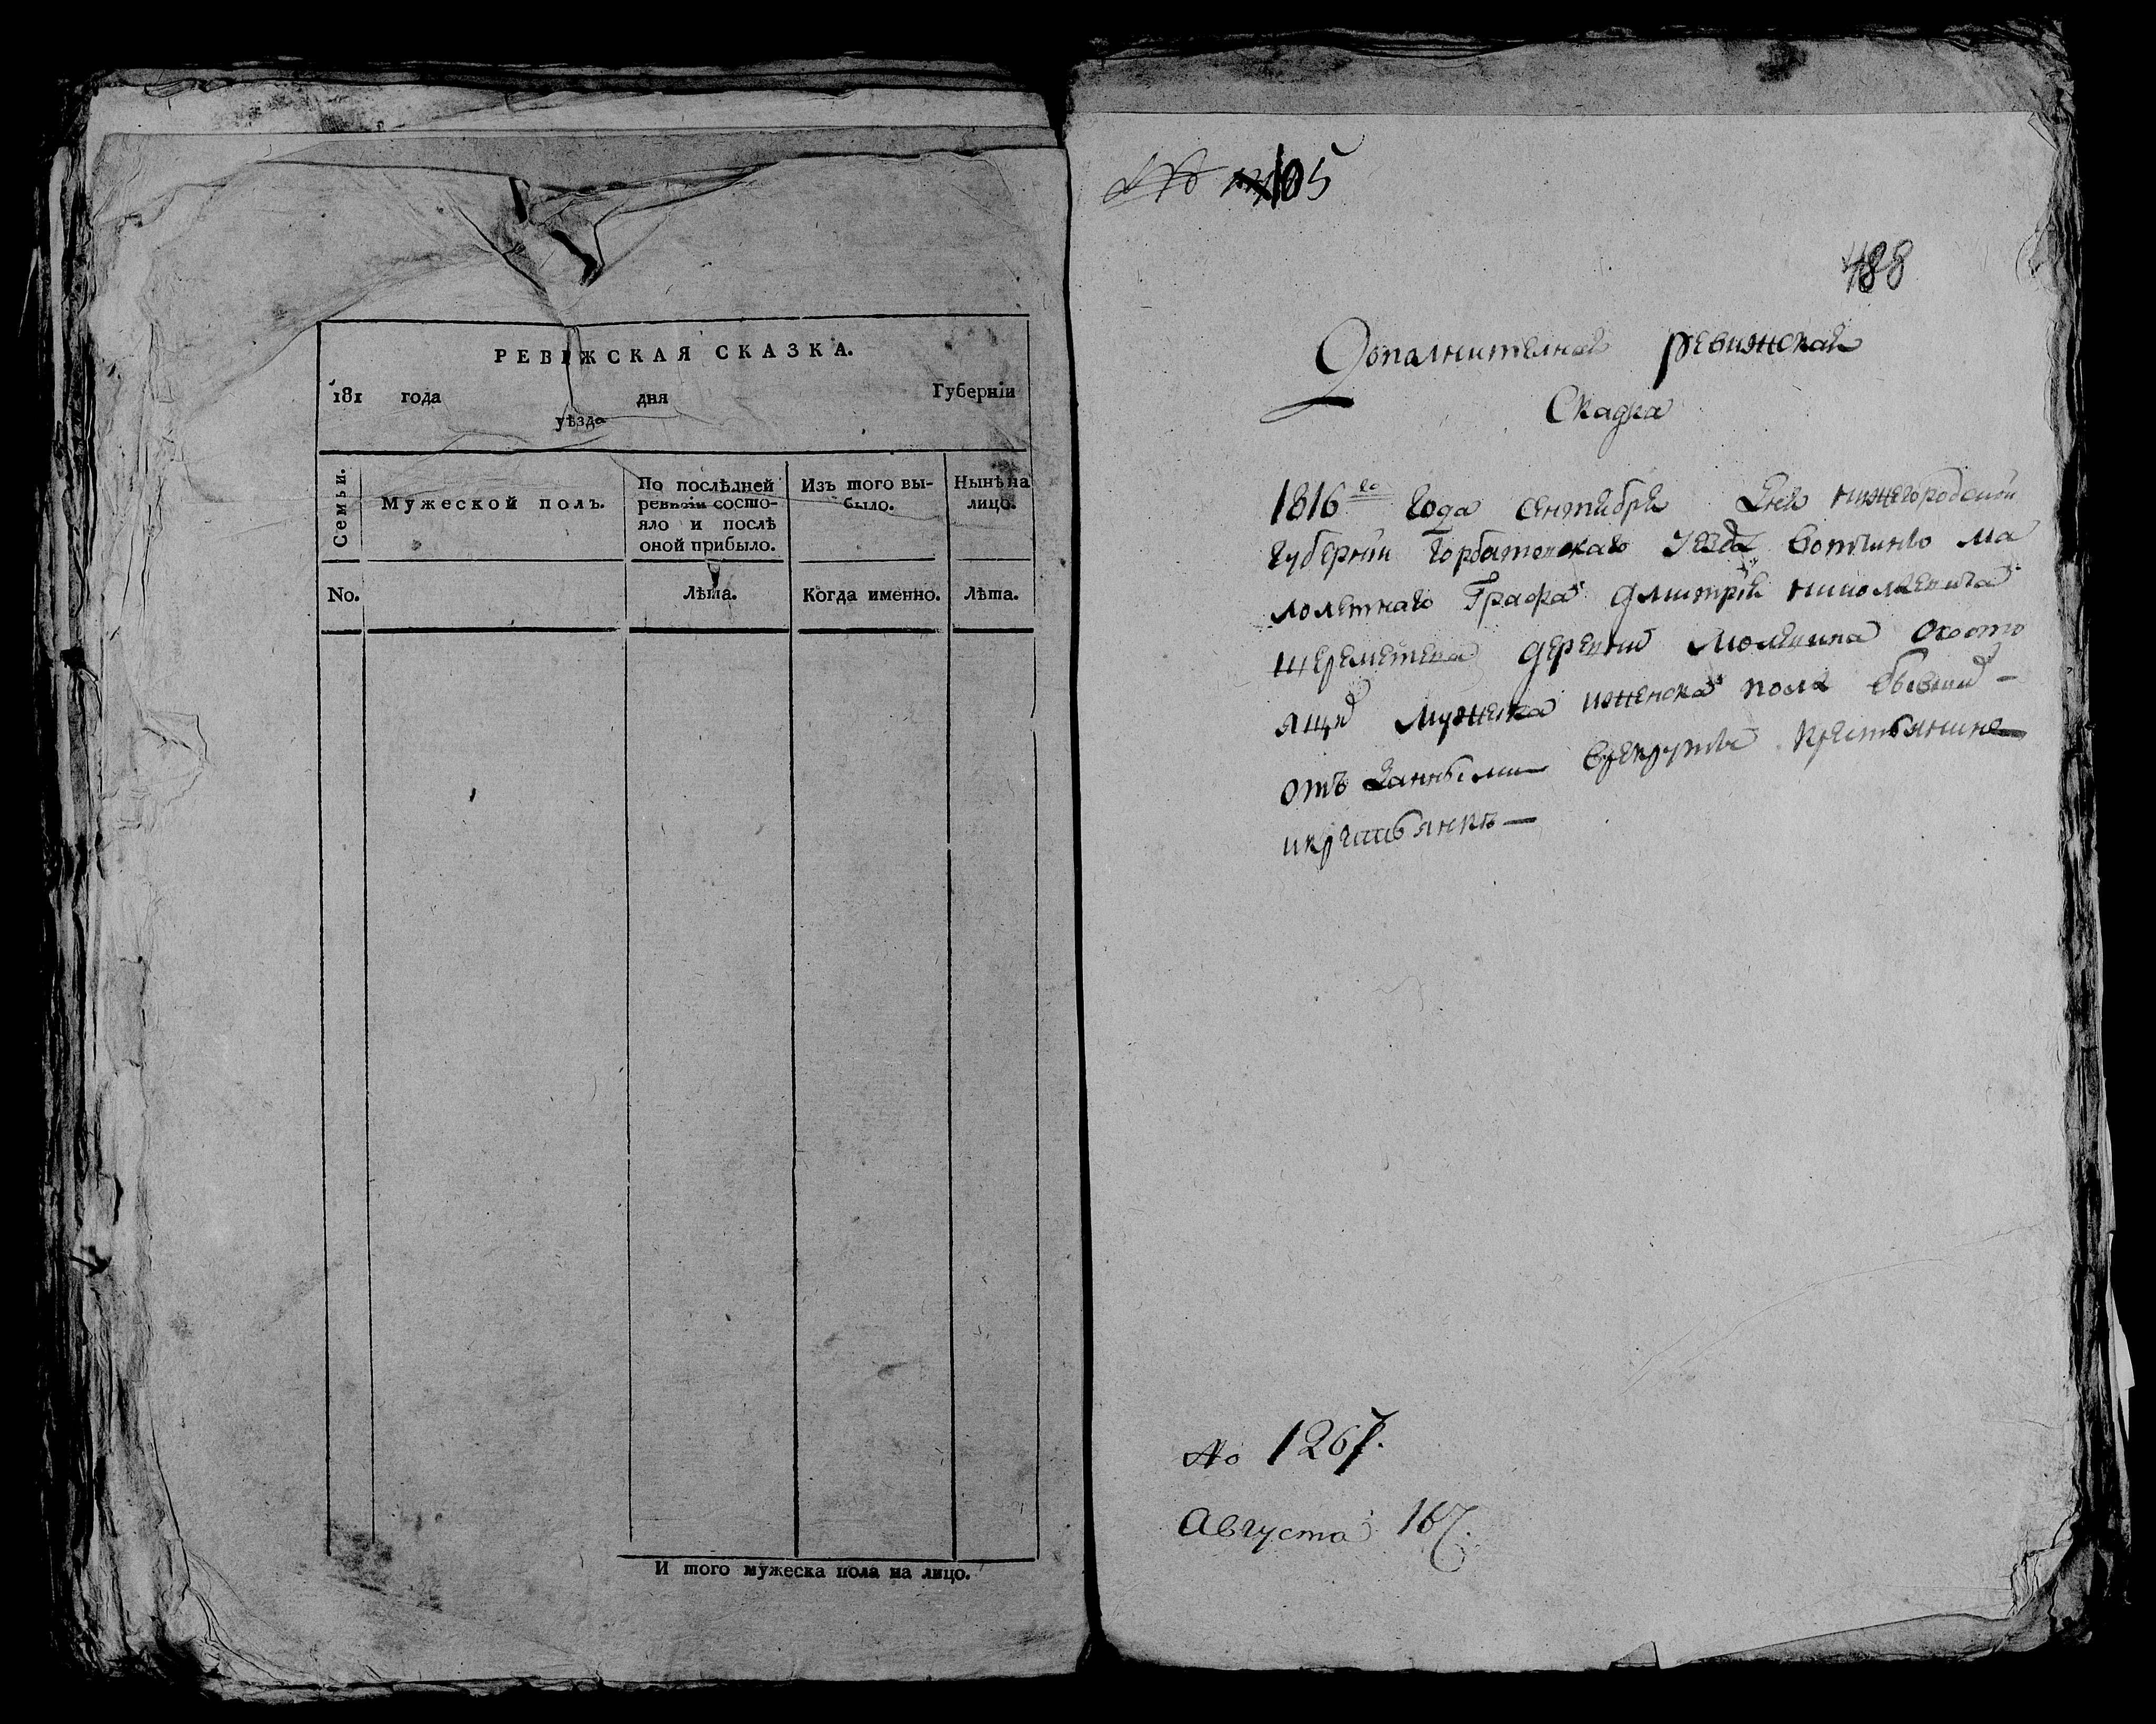 РЕВИЖСКАЯ СКАЗКА.
181 года дня Губерніи
уѣзда
Семьи.
Мужеской полъ.
По послѣдней ревизіи состояло и послѣ оной прибыло.
Изъ того выбыло.
Нынѣ на лицо.
No.
Лѣта.
Когда именно.
Лѣта.
И того мужеска пола на лицо.
№ 105
488
Дополнителная ревижская
Сказка
1816го Года сентября дня нижегородской
губернии Горбатовскаго уезда вотчины ма
лолетнаго Графа Дмитрия николаевича
шереметева деревни
мужеска иженска пола
отъ данными врекруты крестьянине
икрестьянкъ
No 1267.
Августа 16